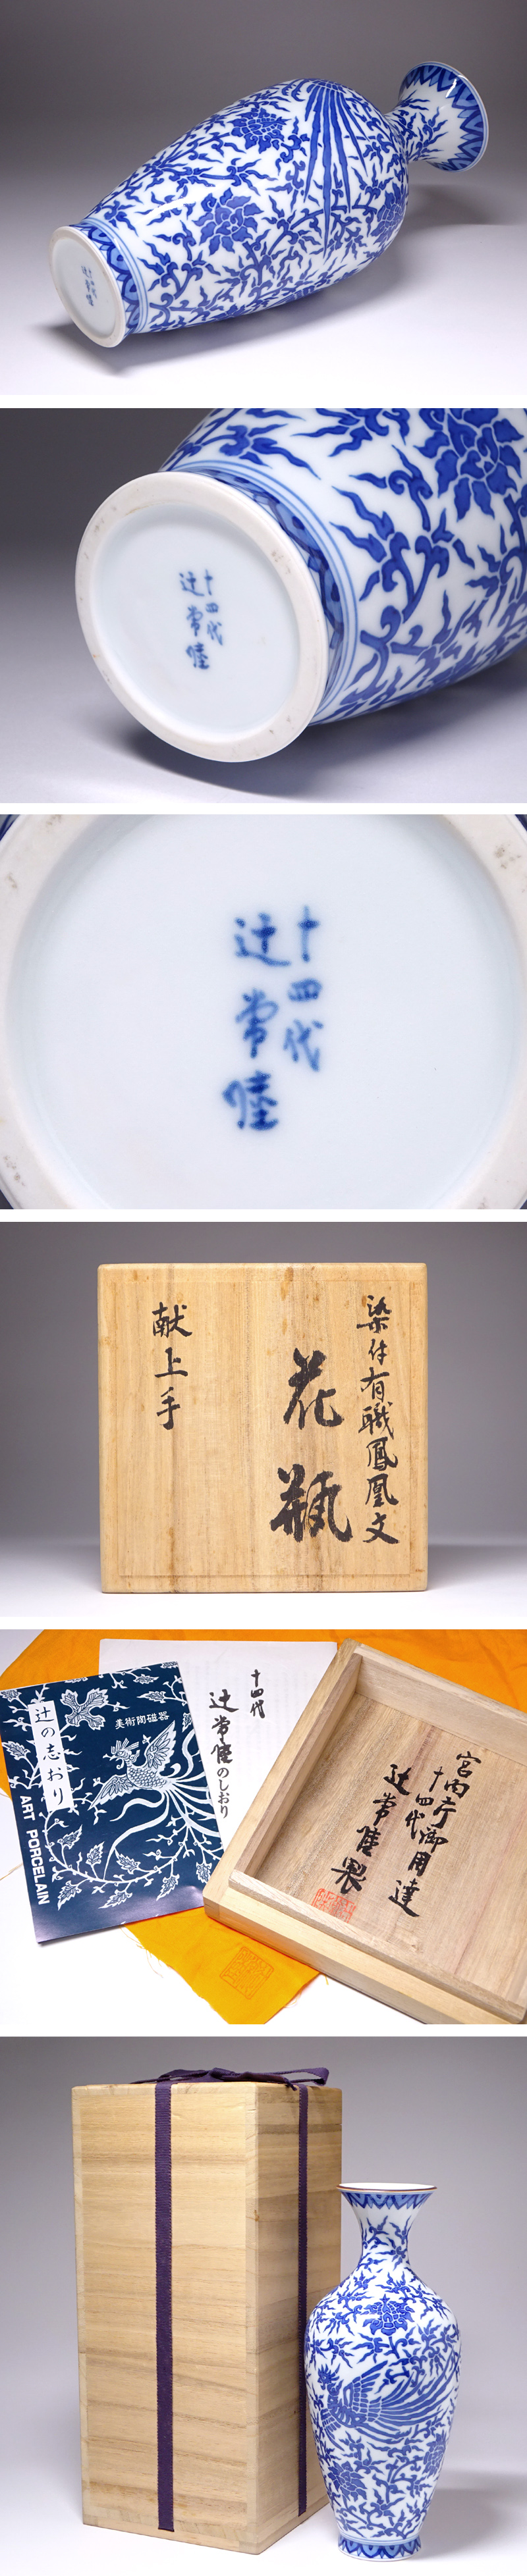 十四代
辻常陸
十四代
辻常陸
十四代
辻常陸
染付有職鳳凰文
花瓶
献上手
辻の志おり
美術陶磁器
ART PORCELAIN
十四代
辻常陸のしおり
宮内庁御用達
十四代
辻常陸製